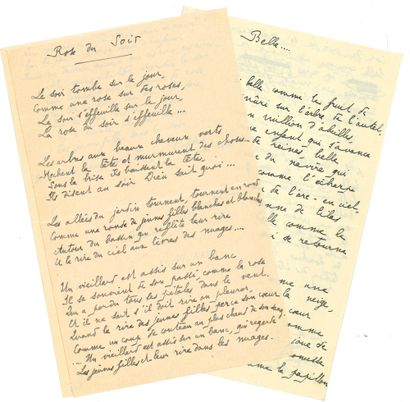 Rose du Soir
Le soir tombe sur le jour,
Comme une rose sur des roses,
Le soir s'effeuille sur le jour,
La rose du soir s'effeuille ...
Les arbres aux beaux cheveux verts
Hochent la tête et murmurent des choses
Sous la brise ils baissent la tête,
Ils disent au soir Dieu sait quoi ...
Les allées du jardin tournent, tournent en rond
Comme une ronde de jeunes filles blanches et blondes
Autour du bassin qui reflète leur rire
Et le rire du ciel aux lèvres des nuages ...
Un vieillard est assis sur un banc,
Il se souvient de son passé, comme la rose
Qui a perdu tous ses pétales dans le vent.
Et il ne sait s'il doit rire ou pleurer,
Quand le rire des jeunes filles perce son cœur
Comme un coup de couteau au plus chaud de son sang
... Un vieillard est assis sur un banc, qui regarde
Les jeunes filles et leur rire dans les nuages.
Belle ...
belle comme le fruit
sur l'arbre de l'autel,
million d'abeilles
enfant qui s'avance
reines belle
du navire qui
comme l'écharpe
l'arc-en-ciel,
de lilas
comme le
se retourne
une
neige,
comme
le papillon